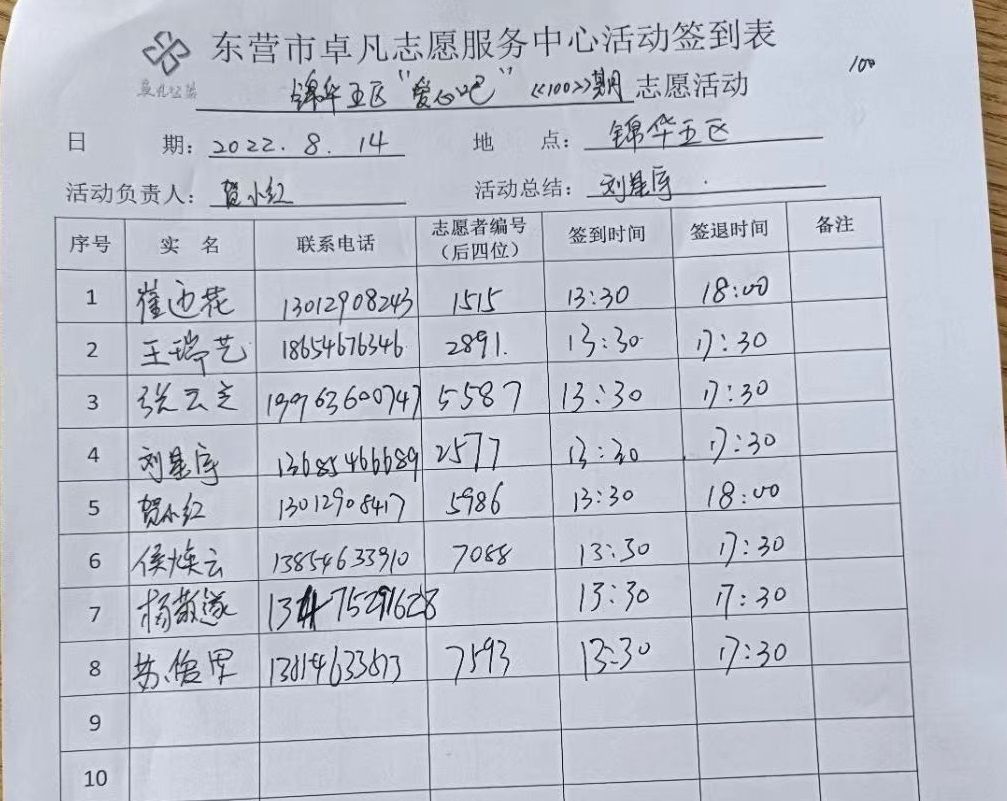 东营市卓凡志愿服务中心活动签到表
100
锦华五区“爱心吧”《100》期 志愿活动
日 期：2022.8.14 地 点：锦华五区
活动负责人：贺小红 活动总结：刘星宇
序号 实名 联系电话 志愿者编号（后四位） 签到时间 签退时间 备注
1 崔迎花 13012908243 1515 13:30 18:00
2 王瑞艺 18654676346 2891. 13:30 17:30
3 张云 19963600747 5587 13:30 17:30
4 刘星宇 13685466689 2577 13:30 17:30
5 贺小红 13012908417 5986 13:30 18:00
6 侯焕云 13854633910 7088 13:30 17:30
7 杨 13:30 17:30
8 苏俊 7593 13:30 17:30
9
10